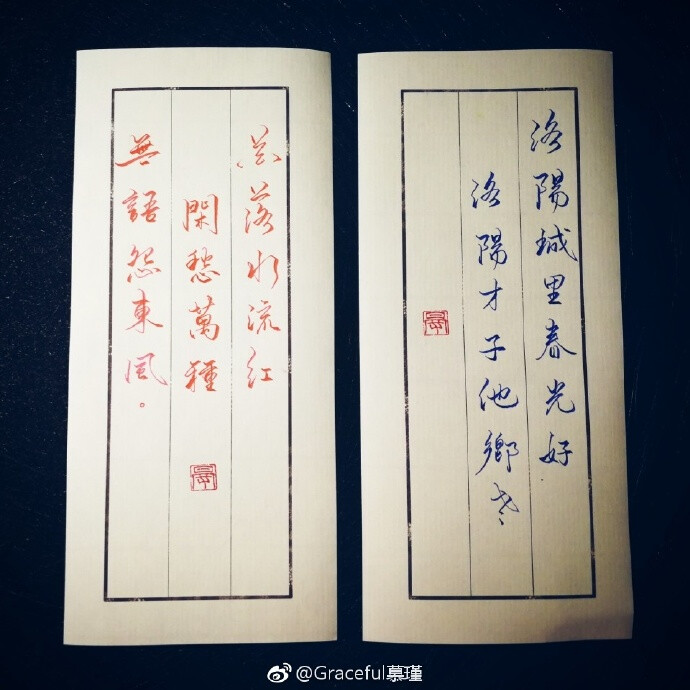 洛陽城里春光好
洛陽才子他鄉老
花落水流红
閑愁萬種
無語怨東風。
@Graceful慕瑾